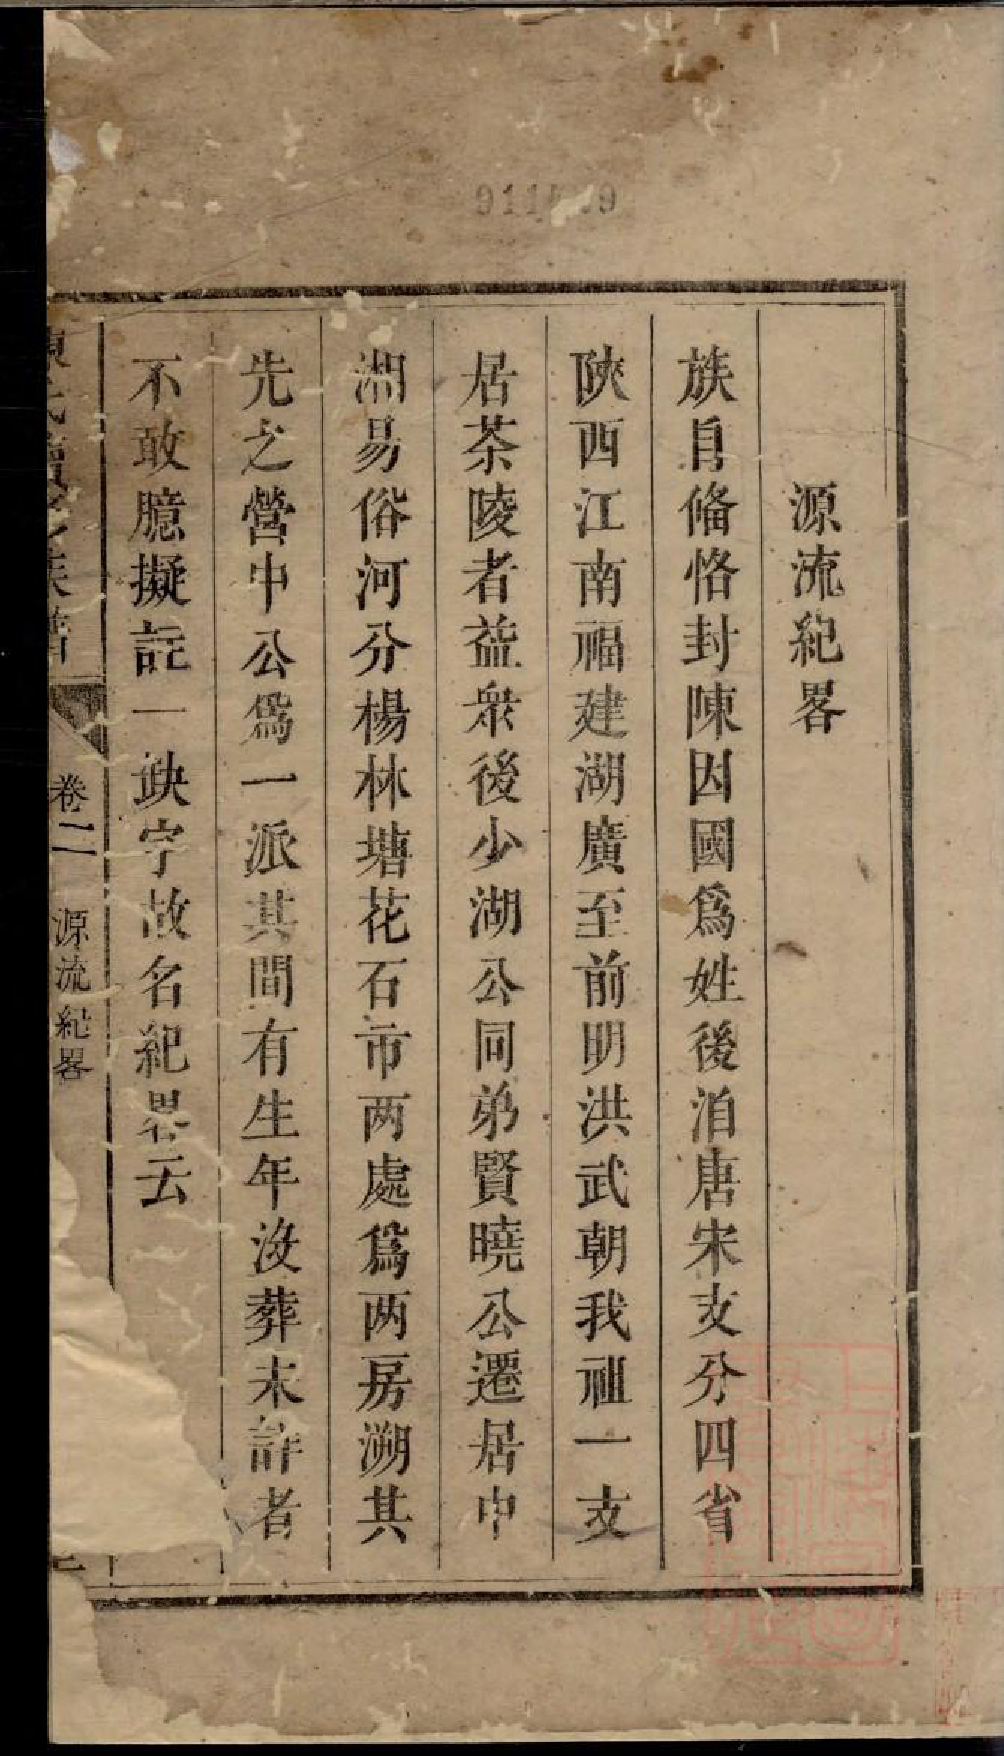 源流紀畧
族自脩恪封陳因國爲姓後洎唐宋支分四省
陝西江南福建湖廣至前明洪武朝我祖一支
居茶陵者益衆後少湖公同弟賢曉公遷居中
湘易俗河分楊林塘花石市两處爲两房溯其
先之營中公爲一派其間有生年沒葬未詳者
不敢臆擬註一缺字故名紀畧云
卷二 源流紀畧